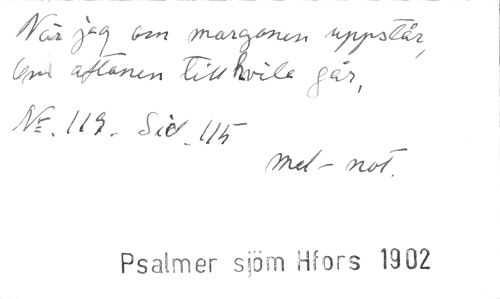 När jag om morgonen uppstår,
Om aftonen till hvila går,
No. 119. Sid. 115
mel-not.
Psalmer sjöm Hfors 1902